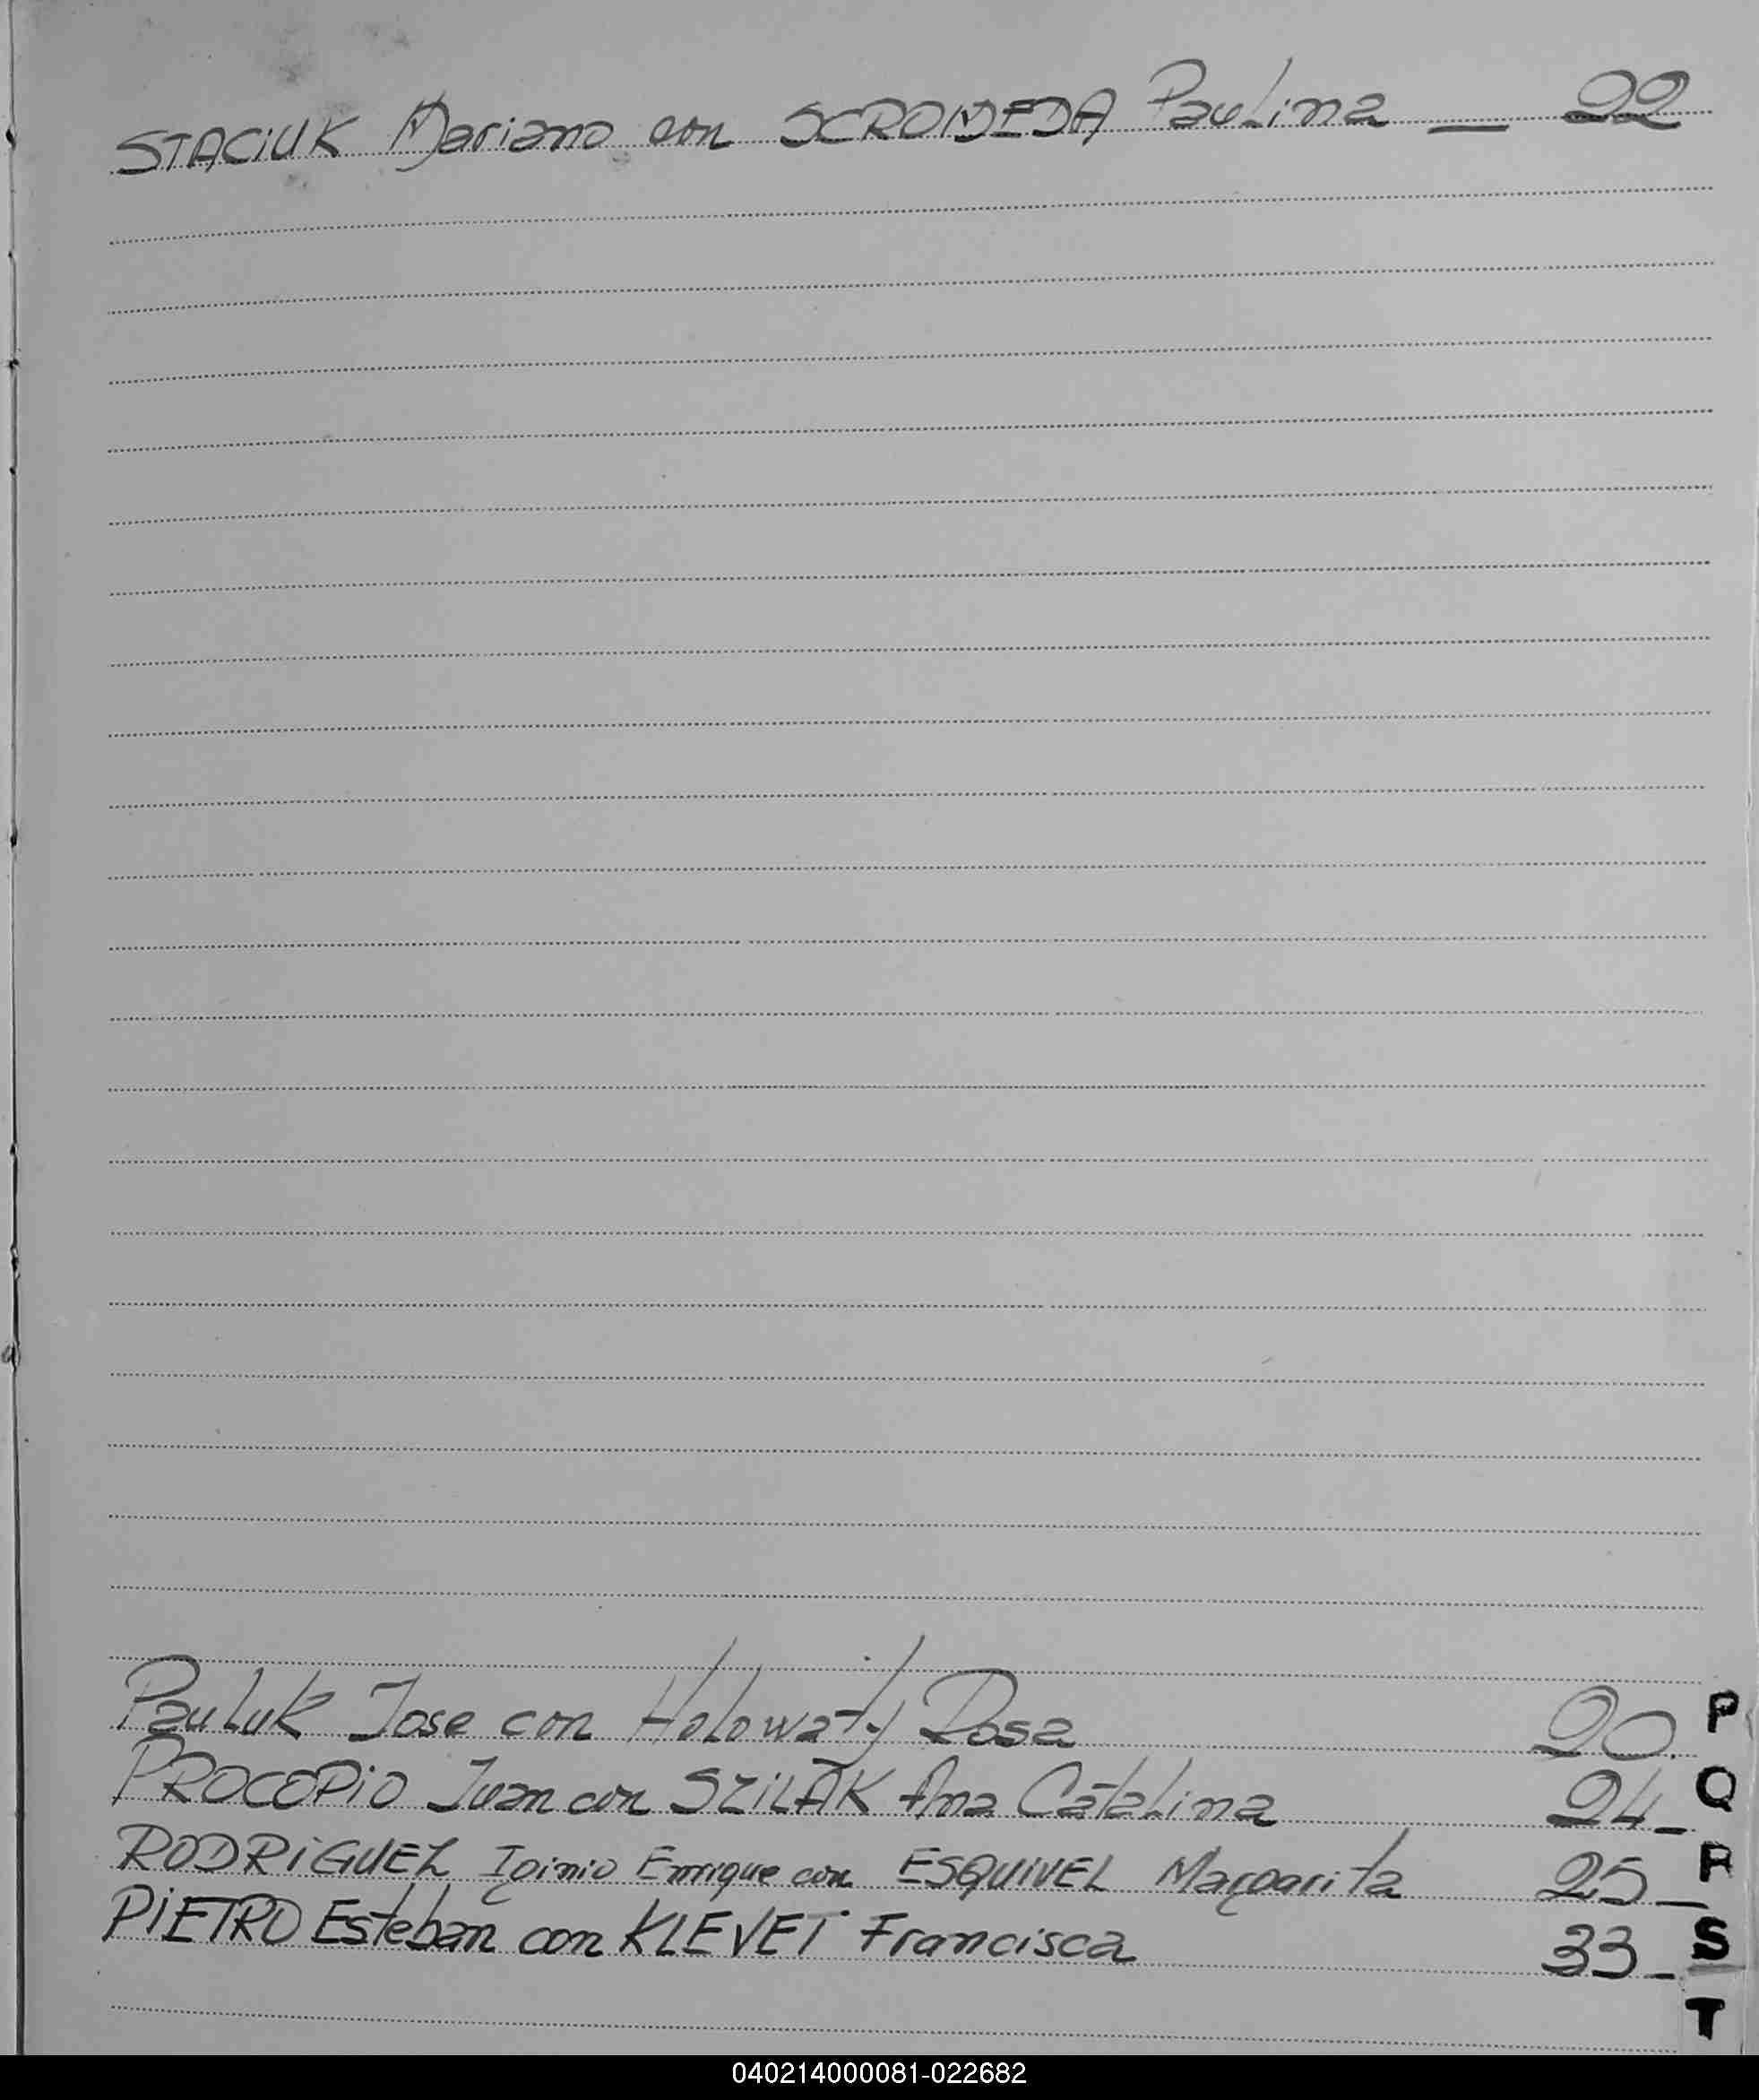 STACIUK Mariano con SCROMEDA Paulina — 22
Pauluk Jose con Holowaty Rosa 20.
P
PROCOPIO Juan con SZILAK Ana Catalina 24_
Q
RODRIGUEZ Iginio Enrique con ESQUIVEL Margarita 25_
R
PIETRO Esteban con KLEVET Francisca 33_
S
T
040214000081-022682